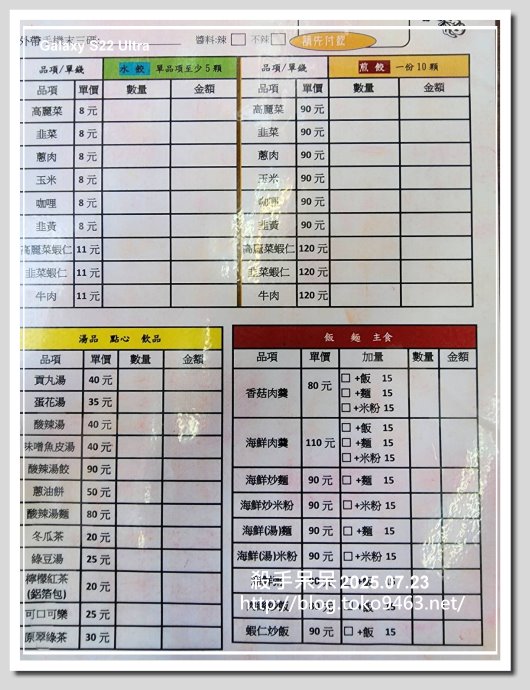 外帶手機末三碼: 醬料:辣 □ 不辣 □ 請先付款
Galaxy S22 Ultra
品項/單錢 水 餃 單品項至少5顆
品項 單價 數量 金額
高麗菜 8 元
韭菜 8 元
蔥肉 8 元
玉米 8 元
咖哩 8 元
韭黃 8 元
高麗菜蝦仁 11 元
韭菜蝦仁 11 元
牛肉 11 元
品項/單錢 煎 餃 一份10顆
品項 單價 數量 金額
高麗菜 90 元
韭菜 90 元
蔥肉 90 元
玉米 90 元
咖哩 90 元
韭黃 90 元
高麗菜蝦仁 120 元
韭菜蝦仁 120 元
牛肉 120 元
湯品 點心 飲品
品項 單價 數量 金額
貢丸湯 40 元
蛋花湯 35 元
酸辣湯 40 元
味噌魚皮湯 40 元
酸辣湯餃 90 元
蔥油餅 50 元
酸辣湯麵 80 元
冬瓜茶 20 元
綠豆湯 25 元
檸檬紅茶
(鋁箔包) 20 元
可口可樂 25 元
原翠綠茶 30 元
飯 麵 主食
品項 單價 加量 數量 金額
香菇肉羹 80 元 □ +飯 15
□ +麵 15
□ +米粉 15
海鮮肉羹 110 元 □ +飯 15
□ +麵 15
□ +米粉 15
海鮮炒麵 90 元 □ +麵 15
海鮮炒米粉 90 元 □ +米粉 15
海鮮(湯)麵 90 元 □ +麵 15
海鮮(湯)米粉 90 元 □ +米粉 15
蝦仁炒飯 90 元 □ +飯 15
殺手呆呆 2025.07.23
http://blog.toko9463.net/